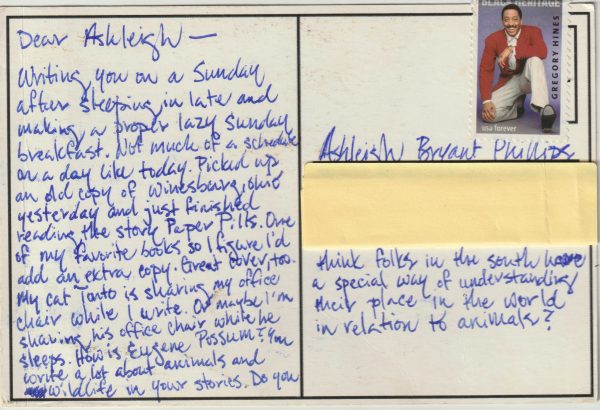 Dear Ashleigh —
Writing you on a Sunday
after sleeping in late and
making a proper lazy Sunday
breakfast. Not much of a schedule
on a day like today. Picked up
an old copy of Winesburg, Ohio
yesterday and just finished
reading the story Paper Pills. One
of my favorite books so I figure I'd
add an extra copy. Great cover, too.
My cat Tonto is sharing my office
chair while I write. Or maybe I'm
sharing his office chair while he
sleeps. How is Eugene Possum? You
write a lot about animals and
wildlife in your stories. Do you
BLACK HERITAGE
GREGORY HINES
usa forever
Ashleigh Bryant Phillips
think folks in the south have
a special way of understanding
their place in the world
in relation to animals?